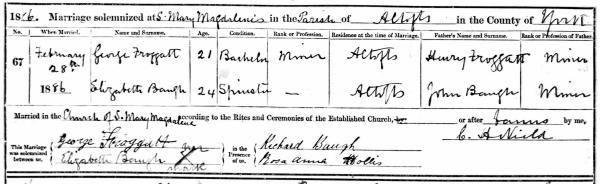 1886. Marriage solemnized at S. Mary Magdalene's in the Parish of Altofts in the County of York
No. When Married. Name and Surname. Age. Condition. Rank or Profession. Residence at the time of Marriage. Father's Name and Surname. Rank or Profession of Father.
67 February 28th 1886 George Froggatt 21 Bachelor Miner Altofts Henry Froggatt Miner
Elizabeth Baugh 24 Spinster — Altofts John Baugh Miner
Married in the Church of S. Mary Magdalene according to the Rites and Ceremonies of the Established Church, or after Banns by me,
C. A. Nield
This Marriage was solemnized between us, George Froggatt
Elizabeth Baugh her X mark
in the Presence of us, Richard Baugh
Rosa Anna Hollis